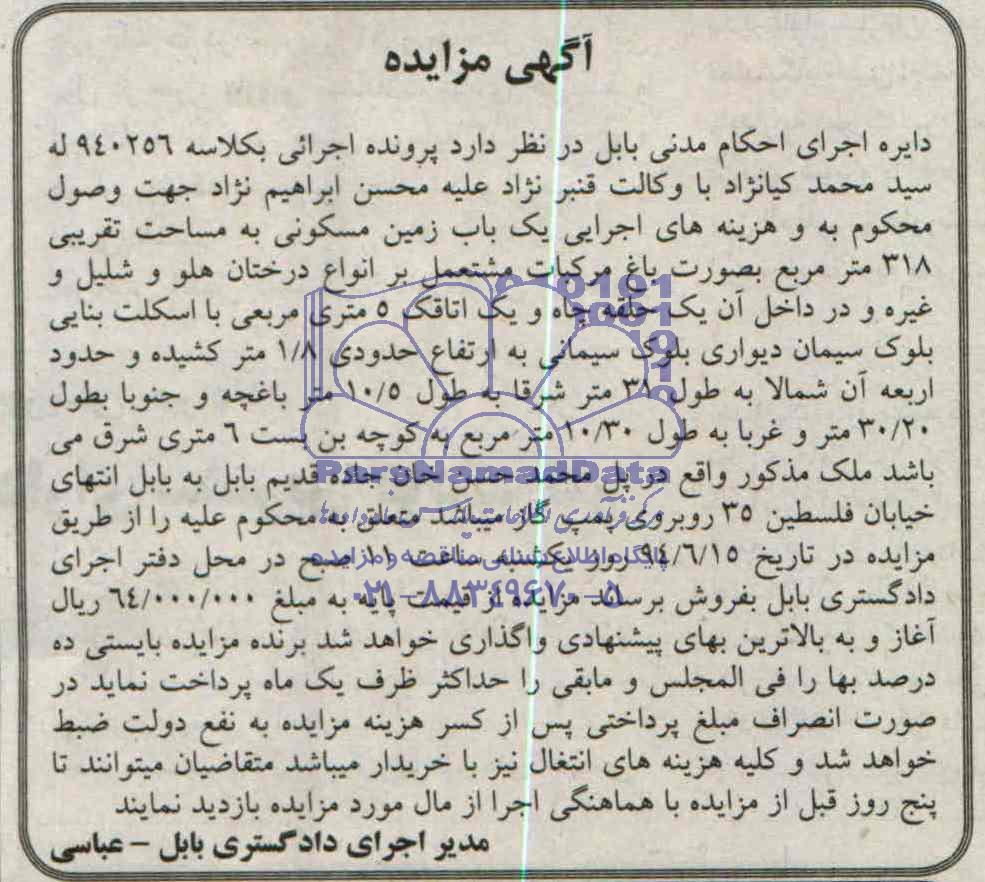 آگهی مزایده
دایره اجرای احکام مدنی بابل در نظر دارد پرونده اجرائی بکلاسه ۹٤۰۲۵٦ له
سید محمد کیانژاد با وکالت قنبر نژاد علیه محسن ابراهیم نژاد جهت وصول
محکوم به و هزینه های اجرایی یک باب زمین مسکونی به مساحت تقریبی
۳۱۸ متر مربع بصورت باغ مرکبات مشتعمل بر انواع درختان هلو و شلیل و
غیره و در داخل آن یک حلقه چاه و یک اتاقک ۵ متری مربعی با اسکلت بنایی
بلوک سیمان دیواری بلوک سیمانی به ارتفاع حدودی ۱/۸ متر کشیده و حدود
اربعه آن شمالا به طول ۳۱ متر شرقا به طول ۱۰/۵ متر باغچه و جنوبا بطول
۳۰/۲۰ متر و غربا به طول ۱۰/۳۰ متر مربع به کوچه بن بست ٦ متری شرق می
باشد ملک مذکور واقع در پل محمد حسن خان جاده قدیم بابل به بابل انتهای
خیابان فلسطین ۳۵ روبروی پمپ گاز میباشد متعلق به محکوم علیه را از طریق
مزایده در تاریخ ۹٤/٦/۱۵ روز یکشنبه ساعت ۱۱ صبح در محل دفتر اجرای
دادگستری بابل بفروش برساند مزایده از قیمت پایه به مبلغ ٦٤/۰۰۰/۰۰۰ ریال
آغاز و به بالاترین بهای پیشنهادی واگذاری خواهد شد برنده مزایده بایستی ده
درصد بها را فی المجلس و مابقی را حداکثر ظرف یک ماه پرداخت نماید در
صورت انصراف مبلغ پرداختی پس از کسر هزینه مزایده به نفع دولت ضبط
خواهد شد و کلیه هزینه های انتغال نیز با خریدار میباشد متقاضیان میتوانند تا
پنج روز قبل از مزایده با هماهنگی اجرا از مال مورد مزایده بازدید نمایند
مدیر اجرای دادگستری بابل - عباسی
ParsNamadData
پایگاه اطلاع رسانی مناقصه و مزایده
۰۲۱-۸۸۳٤۹٦۷۰-۵